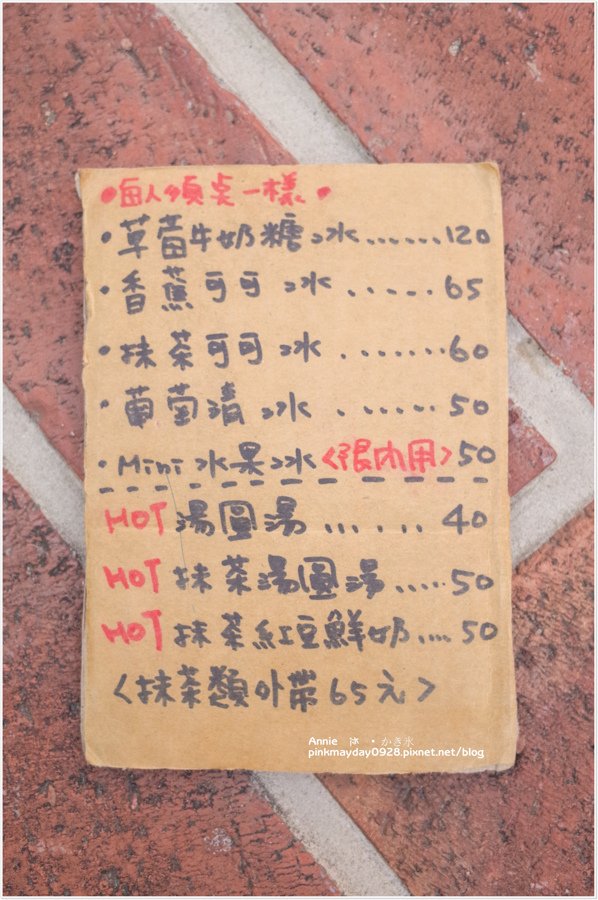 •每人須點一樣•
•草莓牛奶糖冰.......120
•香蕉可可冰......65
•抹茶可可冰........60
•葡萄清冰.......50
•Mini水果冰<限內用>50
HOT湯圓湯......40
HOT抹茶湯圓湯.....50
HOT抹茶紅豆鮮奶....50
<抹茶類外帶65元>
Annie 冰・かき氷
pinkmayday0928.pixnet.net/blog